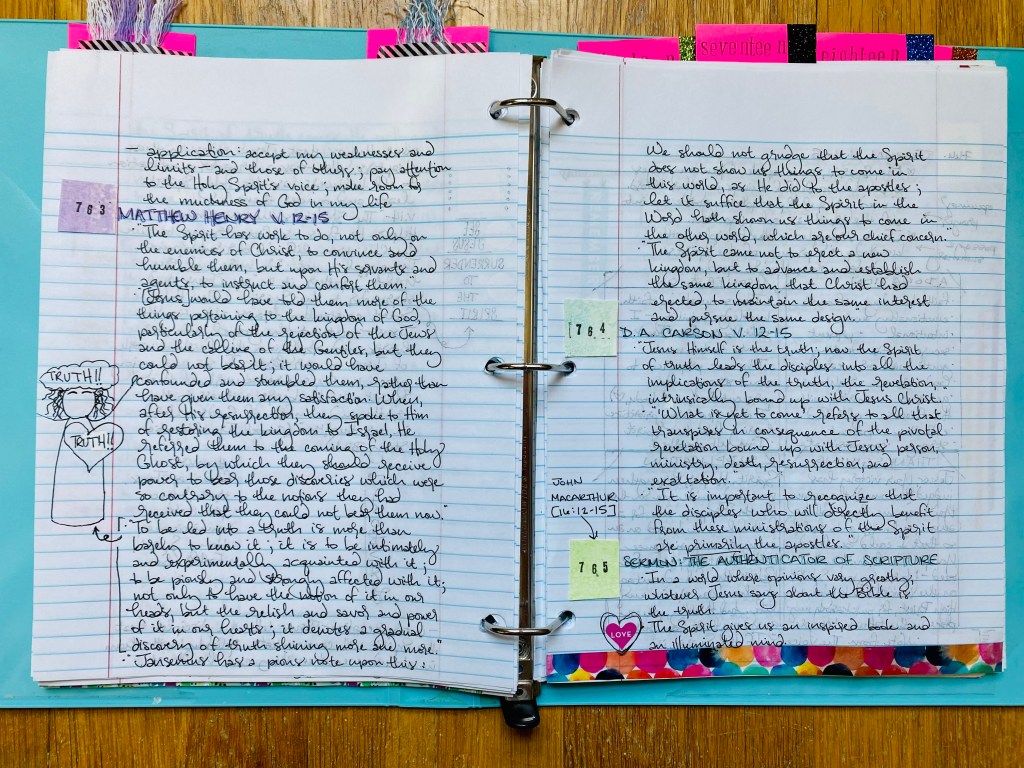 seventeen
eighteen
- application: accept my weaknesses and
limits - and those of others; pay attention
to the Holy Spirit's voice; make room for
the muchness of God in my life
763
MATTHEW HENRY V. 12-15
"The Spirit has work to do, not only on
the enemies of Christ, to convince and
humble them, but upon His servants and
agents, to instruct and comfort them."
"[Jesus] would have told them more of the
things pertaining to the kingdom of God,
particularly of the rejection of the Jews
and the calling of the Gentiles, but they
could not bear it; it would have
confounded and stumbled them, rather than
have given them any satisfaction. When,
after His resurrection, they spoke to Him
of restoring the kingdom to Israel, He
referred them to the coming of the Holy
Ghost, by which they should receive
power to bear those discoveries which were
so contrary to the notions they had
received that they could not bear them now."
TRUTH!!
TRUTH!!
"To be led into a truth is more than
barely to know it; it is to be intimately
and experimentally acquainted with it;
to be piously and strongly affected with it;
not only to have the notion of it in our
heads, but the relish and savor and power
of it in our hearts; it denotes a gradual
discovery of truth shining more and more."
"Jansenius has a pious note upon this:
We should not grudge that the Spirit
does not show us things to come in
this world, as He did to the apostles;
let it suffice that the Spirit in the
Word hath shown us things to come in
the other world, which are our chief concern."
"The Spirit came not to erect a new
kingdom, but to advance and establish
the same kingdom that Christ had
erected, to maintain the same interest
and pursue the same design."
764
D.A. CARSON V. 12-15
"Jesus Himself is the truth; now the Spirit
of truth leads the disciples into all the
implications of the truth, the revelation,
intrinsically bound up with Jesus Christ."
"'What is yet to come' refers to all that
transpires in consequence of the pivotal
revelation bound up with Jesus' person,
ministry, death, resurrection, and
exaltation."
"It is important to recognize that
the disciples who will directly benefit
from these ministrations of the Spirit
are primarily the apostles."
JOHN
MACARTHUR
[16:12-15]
765
SERMON: THE AUTHENTICATOR OF SCRIPTURE
In a world where opinions vary greatly,
whatever Jesus says about the Bible is
the truth.
The Spirit gives us an inspired book and
an illuminated mind.
LOVE